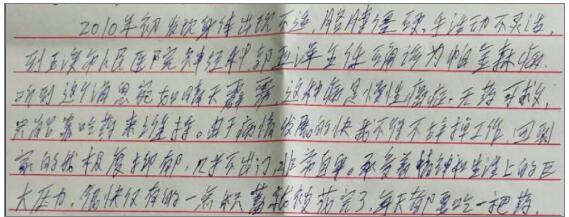 2010年初发现身体出现不适,胳膊僵硬,手活动不灵活,
到五溪市人民医院神经科郭亚洋主任确诊为帕金森病.
听到这个消息犹如晴天霹雳,这种病是慢性癌症,无药可救,
只能靠吃药来维持。由于病情发展的快我不得不辞掉工作,回到
家的我极度抑郁,几乎不出门,非常自卑。承受着精神和生活上的巨
大压力,很快仅有的一点积蓄就花完了,每天都要吃一把药.